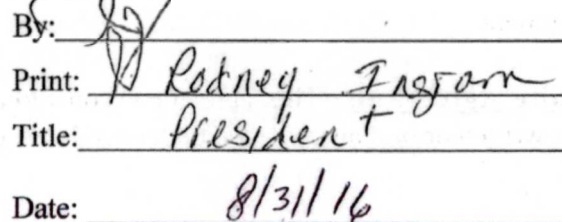 By:
Print: Rodney Ingram
Title: President
Date: 8/31/16